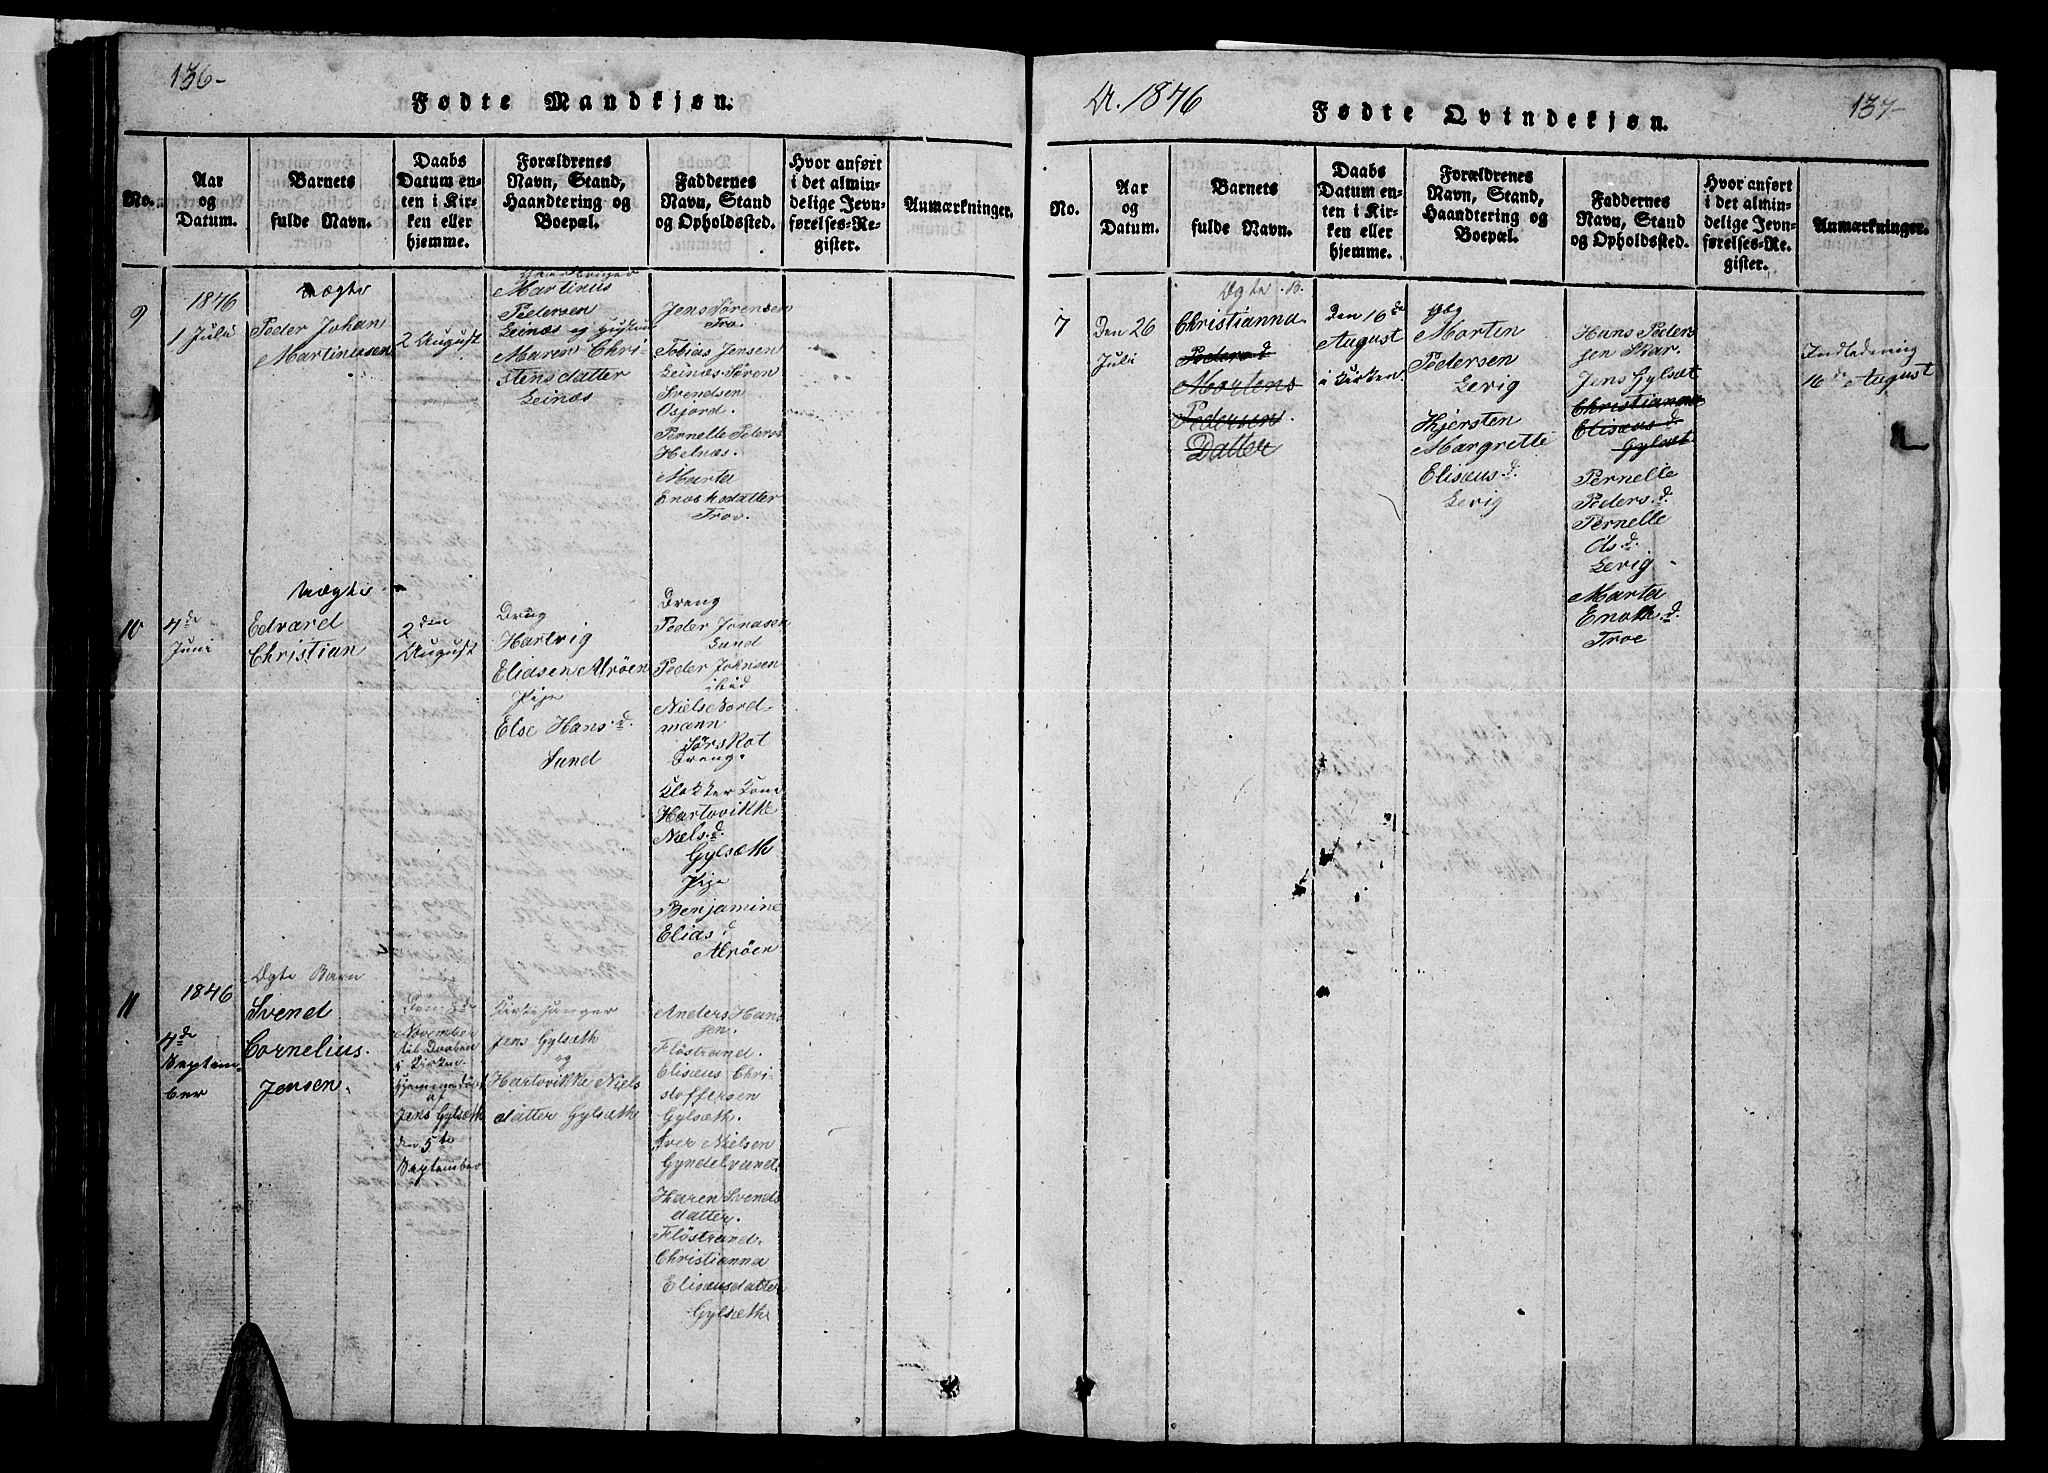 136-
Fødte Mandkjøn.
No.
Aar
og
Datum.
Barnets
fulde Navn.
Daabs
Datum en-
ten i Kir-
ken eller
hjemme.
Forældrenes
Navn, Stand,
Haandtering og
Boepæl.
Faddernes
Navn, Stand
og Opholdssted.
Hvor anført
i det almin-
delige Jevn-
førelses-Re-
gister.
Anmærkninger.
9
1846
1 Juli
Uægte
Peder Johan
Martinusen
2 August
Martinus
Pedersen
Leinæs og
Maren Chri-
stensdatter
Leinæs
Jens Sørensen
Tro.
Tobias Jensen
Leinæs Søren
Svendsen
Osfjord.
Pernelle Peders
Helnæs.
Marta
Enochsdatter
Trov.
10
4de
Juni
Uægte
Edvard
Christian
2den
August
Dreng
Hartvig
Eliasen Alrøen
Pige
Else Hans d.
Sund
Dreng
Peder Jonasen
Sund
Peder Johnsen
ibid
Niels Nord-
mann
Sørskot
Dreng.
Klokker Kone
Hartovikke
Niels d.
Gylsæth
Pige
Benjamine
Elias d
Alrøen
11
1846
4de
Septem-
ber
Ægte Barn
Svend
Cornelius
Jensen.
Den 8de
November
til Daaben
i Kirken
Hjemmedøbt
af
Jens Gylsæth
den 5te
September
Kirkesanger
Jens Gylsæth
og
Hartovikke Niels
datter Gylsæth
Anders Han
sen.
Flöstrand.
Eliseus Chri-
stoffersen
Gylsæth.
Iver Nielsen
Gyndelvand.
Karen Svends
datter.
Flöstrand.
Christianna
Elisæusdatter
Gylsæth
A. 1846
Fødte Qvindekjøn.
137-
No.
Aar
og
Datum.
Barnets
fulde Navn.
Daabs
Datum en-
ten i Kir-
ken eller
hjemme.
Forældrenes
Navn, Stand,
Haandtering og
Boepæl.
Faddernes
Navn, Stand
og Opholdssted.
Hvor anført
i det almin-
delige Jevn-
førelses-Re-
gister.
Anmærkninger.
7
Den 26
Juli
Ægte B.
Christianna
Peders d
Mortens
Pedersen
Datter
Den 16de
August
i Kirken
Morten
Pedersen
Levig
Kjersten
Margrette
Elisæus d.
Levig
Hans Peder-
sen Skar.
Jens Gylsæt
Christianna
Elisæus d.
Gylsæt
Pernelle
Peders d.
Pernelle
Ols d.
Levig
Marta
Enoch d.
Troe
Indledning
16de August